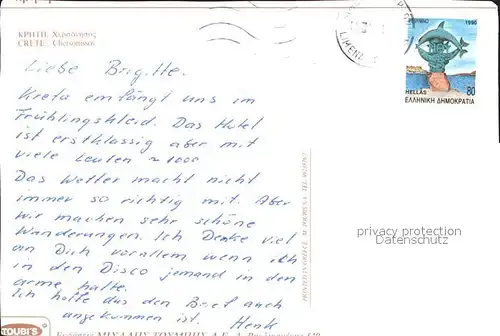 ΚΡΗΤΗ. Χερσόνησος
CRETE. Chersonissos
Liebe Brigitte.
Kreta empfängt uns im
Frühlingskleid. Das Hotel
ist erstklassig aber mit
viele Leuten ~ 1000
Das Wetter macht nicht
immer so richtig mit. Aber
wir machen sehr schöne
Wanderungen. Ich Denke viel
an Dich vorallem wenn ich
in den Disco jemand in den
arme halte.
Ich hoffe das den Brief auch
angekommen ist. Henk
1990
HELLAS
80
ΕΛΛΗΝΙΚΗ ΔΗΜΟΚΡΑΤΙΑ
LIMEN
privacy protection
Datenschutz
PRINTED IN GREECE
TOUBI'S
ΜΙΧΑΛΗΣ ΤΟΥΜΠΗΣ Α.Ε.